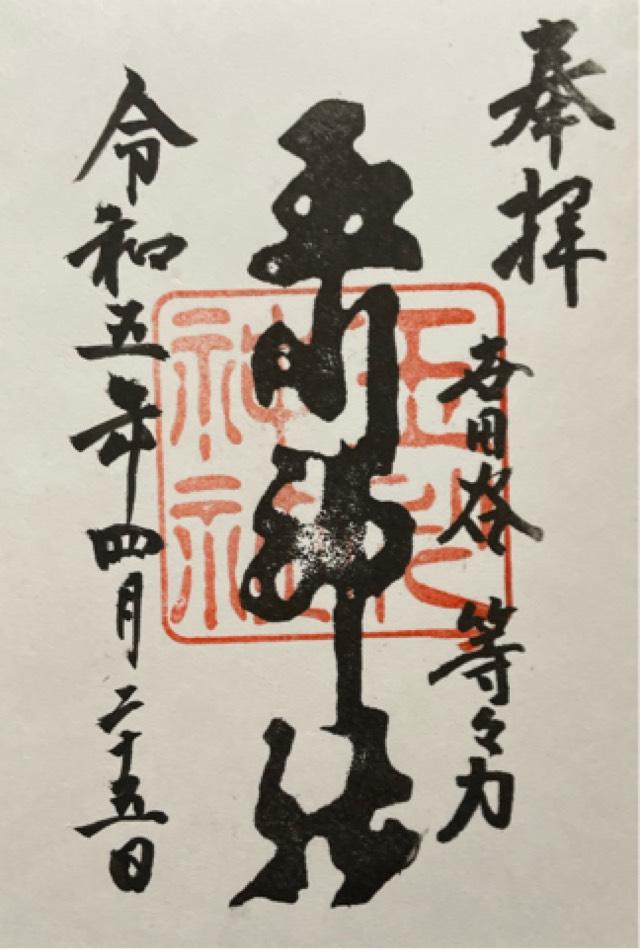 奉拝
世田谷 等々力
玉川神社
令和五年四月二十五日
玉川
神社